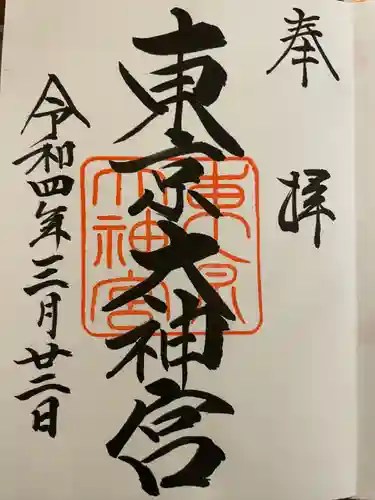 奉拝
東京大神宮
東京大神宮
令和四年三月廿二日